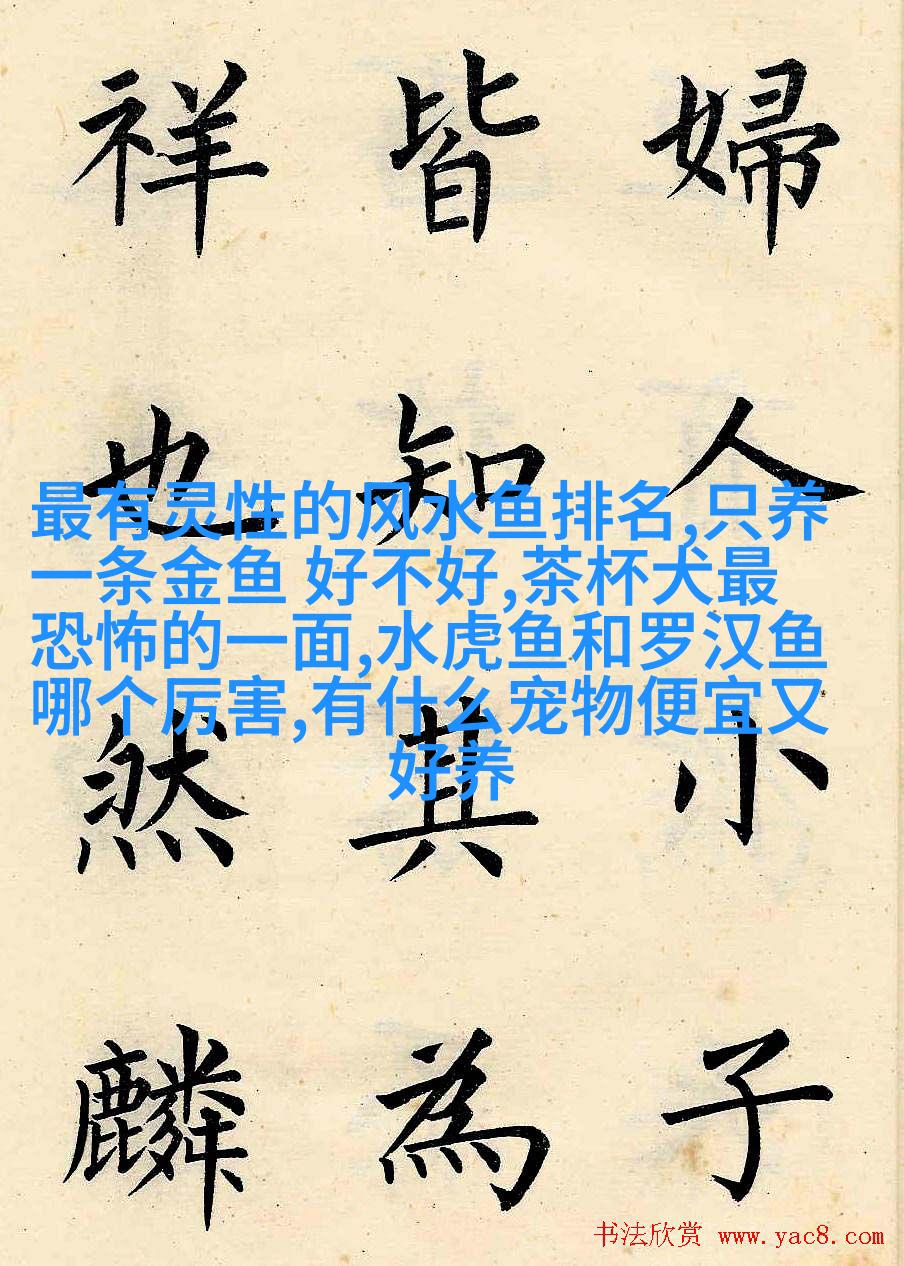 婦人小子
皆知其為
祥也然麟
最有灵性的风水鱼排名,只养
一条金鱼 好不好,茶杯犬最
恐怖的一面,水虎鱼和罗汉鱼
哪个厉害,有什么宠物便宜又
好养
书法欣赏 www.yac8.com